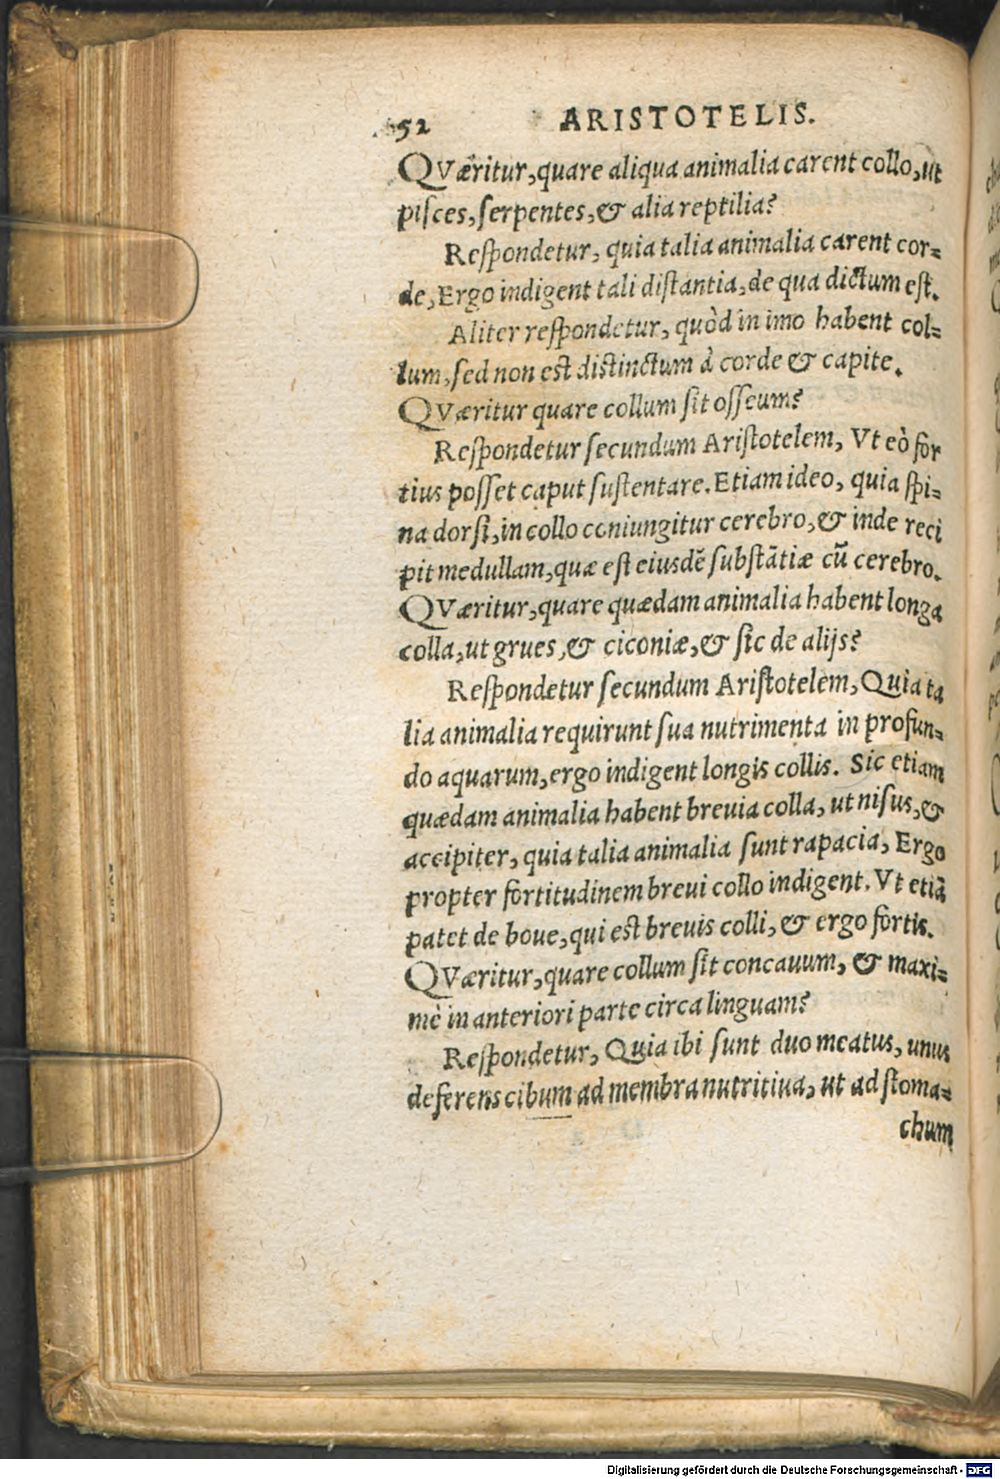 52 ARISTOTELIS.
QVæritur, quare aliqua animalia carent collo, ut
pisces, serpentes, & alia reptilia?
Respondetur, quia talia animalia carent cor-
de, Ergo indigent tali distantia, de qua dictum est.
Aliter respondetur, quòd in imo habent col-
lum, sed non est distinctum à corde & capite.
QVæritur quare collum sit osseum?
Respondetur secundum Aristotelem, Vt eò for
tius posset caput sustentare. Etiam ideo, quia spi-
na dorsi, in collo coniungitur cerebro, & inde reci
pit medullam, quæ est eiusdē substātiæ cū cerebro.
QVæritur, quare quædam animalia habent longa
colla, ut grues, & ciconiæ, & sic de alijs?
Respondetur secundum Aristotelem, Quia ta
lia animalia requirunt sua nutrimenta in profun-
do aquarum, ergo indigent longis collis. Sic etiam
quædam animalia habent breuia colla, ut nisus, &
accipiter, quia talia animalia sunt rapacia, Ergo
propter fortitudinem breui collo indigent. Vt etiā
patet de boue, qui est breuis colli, & ergo fortis.
QVæritur, quare collum sit concauum, & maxi-
mè in anteriori parte circa linguam?
Respondetur, Quia ibi sunt duo meatus, unus
deferens cibum ad membra nutritiua, ut ad stoma-
chum
Digitalisierung gefördert durch die Deutsche Forschungsgemeinschaft - DFG